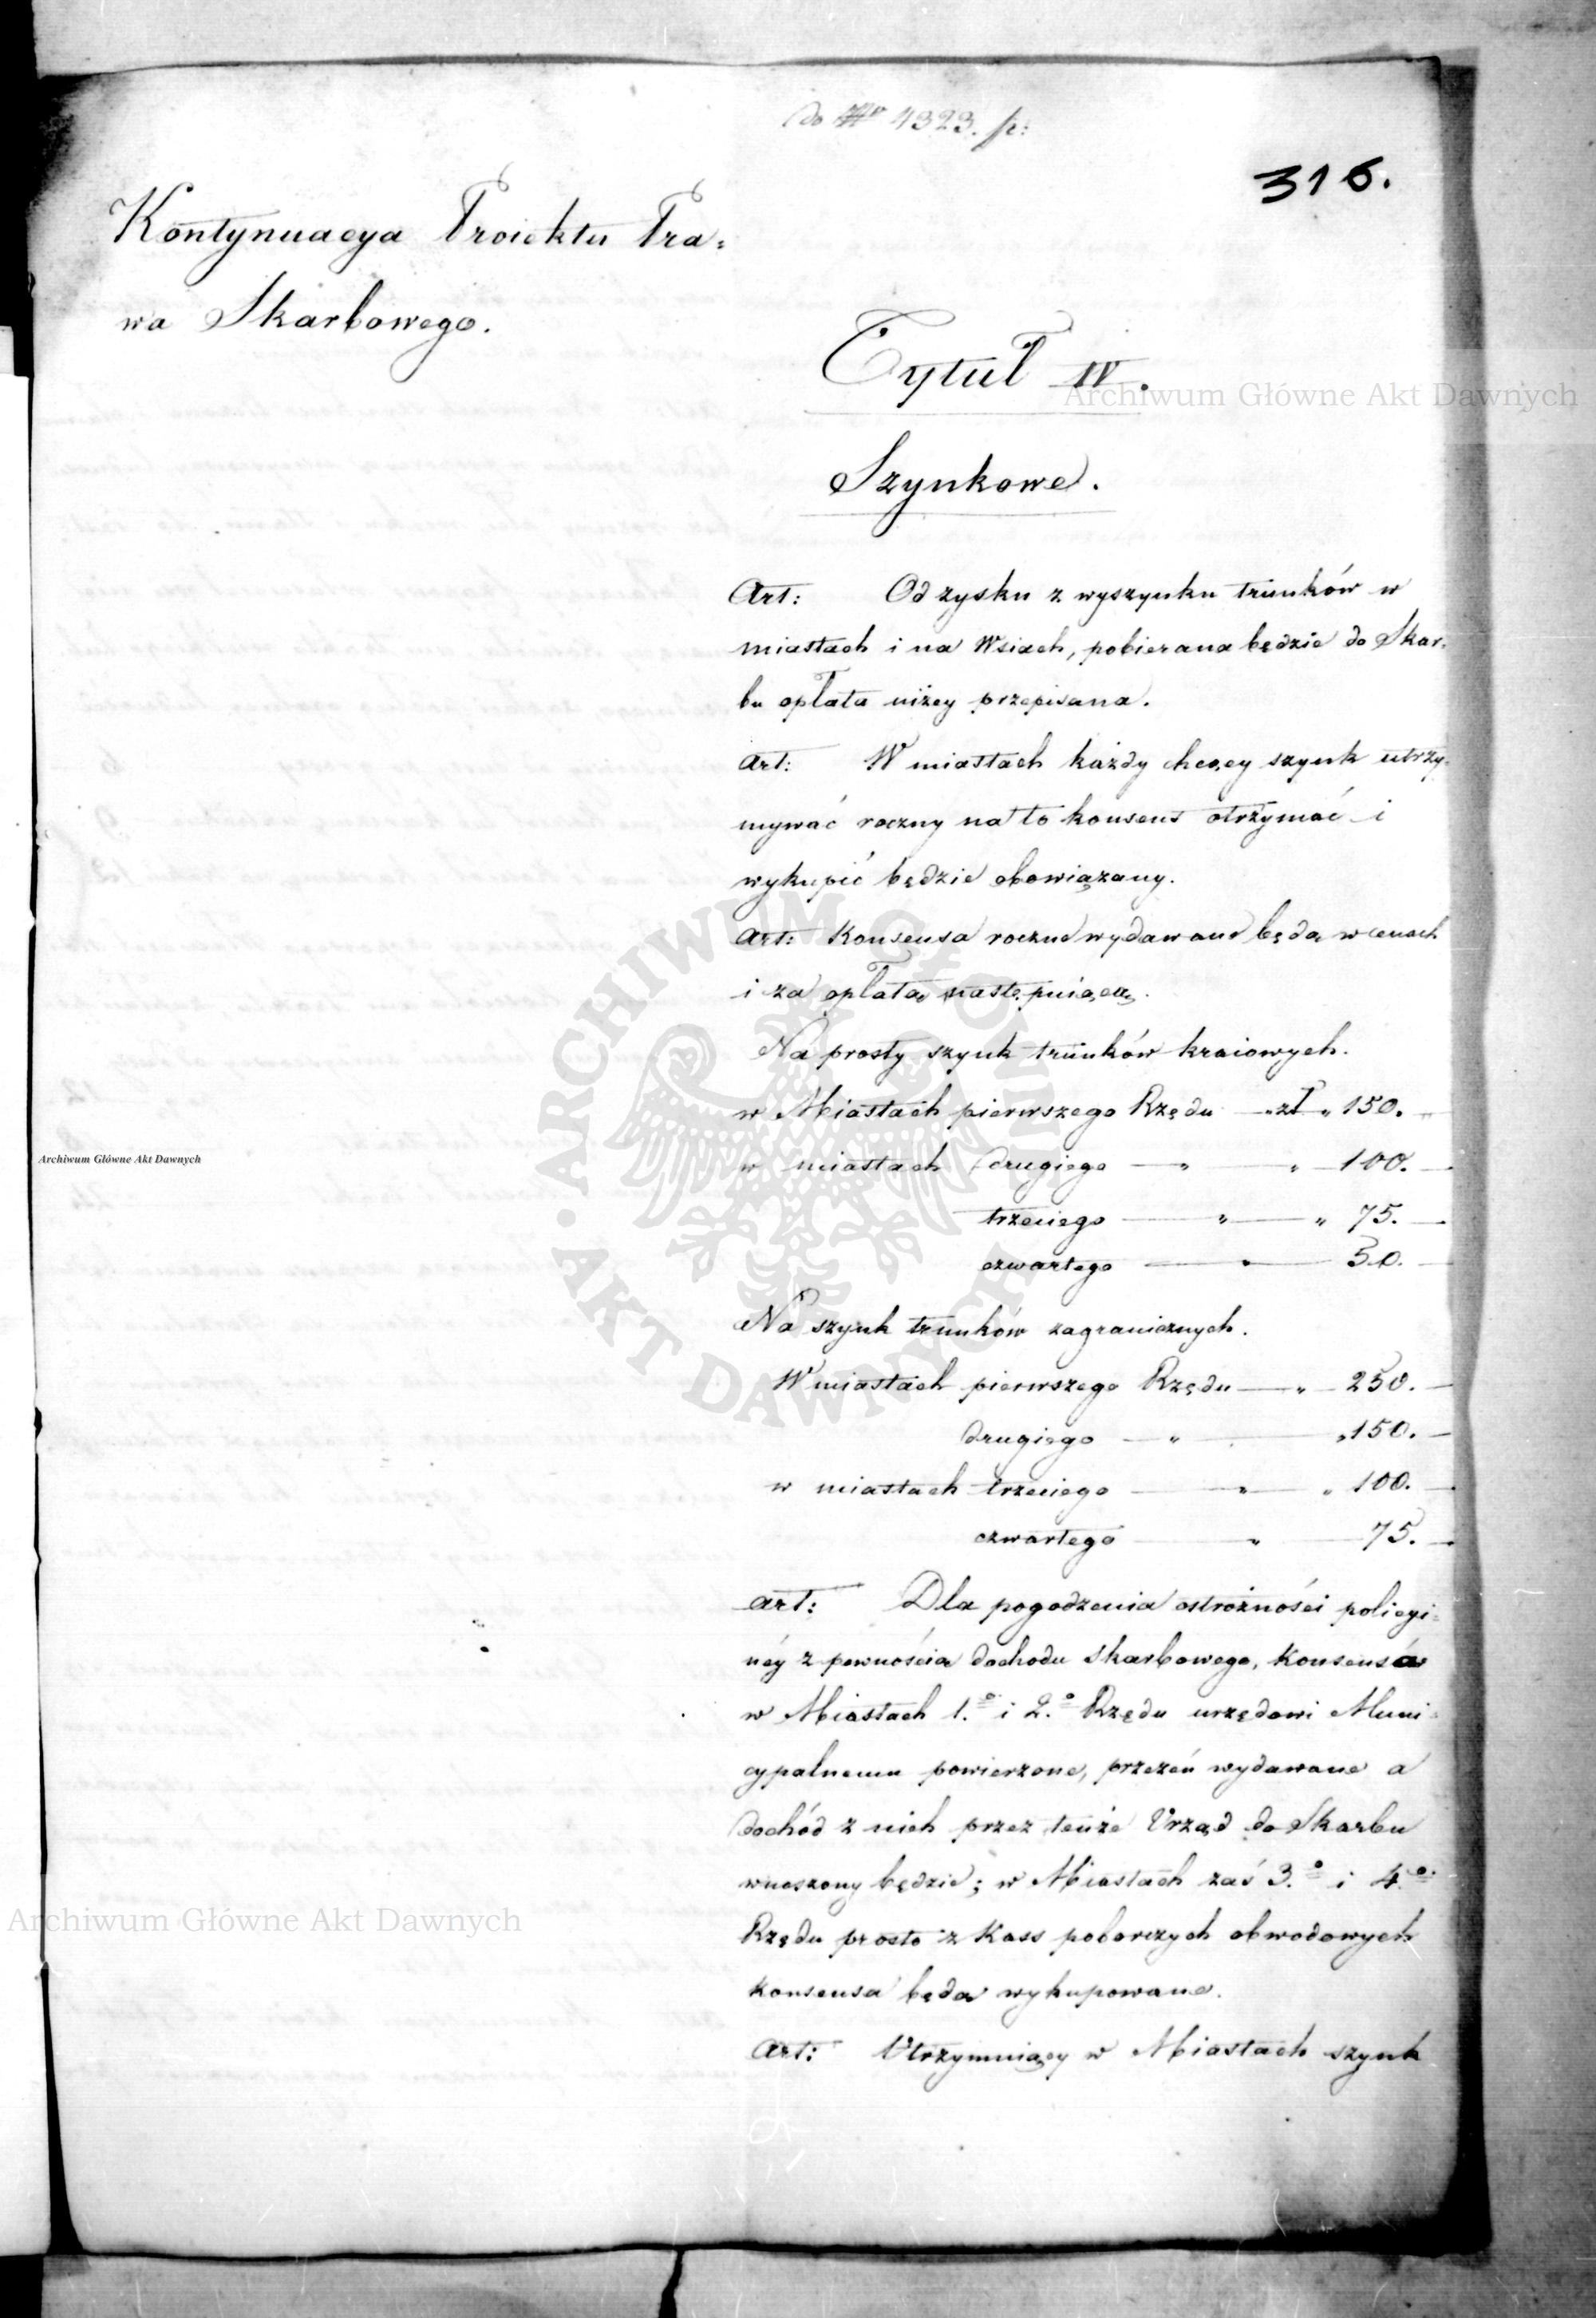 do N° 4323. p:
316.
Kontynuacya Proiektu Pra-
wa Skarbowego.
Tytuł IV.
Szynkowe.
Art: Od zysku z wyszynku trunków w
miastach i na Wsiach, pobierana będzie do Skar-
bu opłata niżey przepisana.
Art: W miastach każdy chcący szynk utrzy-
mywać roczny na to konsens otrzymać i
wykupić będzie obowiązany.
Art: Konsensa roczne wydawane będą w cenach
i za opłatą następuiącą.
Na prosty szynk trunków kraiowych.
w Miastach pierwszego Rzędu — " zł " 150. "
w miastach drugiego — " " — 100. —
trzeciego — " — " 75. —
czwartego — " — 50. —
Na szynk trunków zagranicznych.
W miastach pierwszego Rzędu — " — 250. —
drugiego — " — " 150. —
w miastach trzeciego — " — " 100. —
czwartego — " — 75. —
Art: Dla pogodzenia ostrożności policyi-
néy z pewnością dochodu skarbowego, konsensa
w Miastach 1.° i 2.° Rzędu urzędowi Muni-
cypalnemu powierzone, przezeń wydawane a
dochód z nich przez tenże Urząd do Skarbu
wnoszony będzie; w Miastach zaś 3.° i 4.°
Rzędu prosto z Kass poborczych obwodowych
konsensa będą wykupowane.
Art: Utrzymuiący w Miastach szynk
Archiwum Główne Akt Dawnych
Archiwum Główne Akt Dawnych
Archiwum Główne Akt Dawnych
· ARCHIWUM GŁÓWNE · AKT DAWNYCH